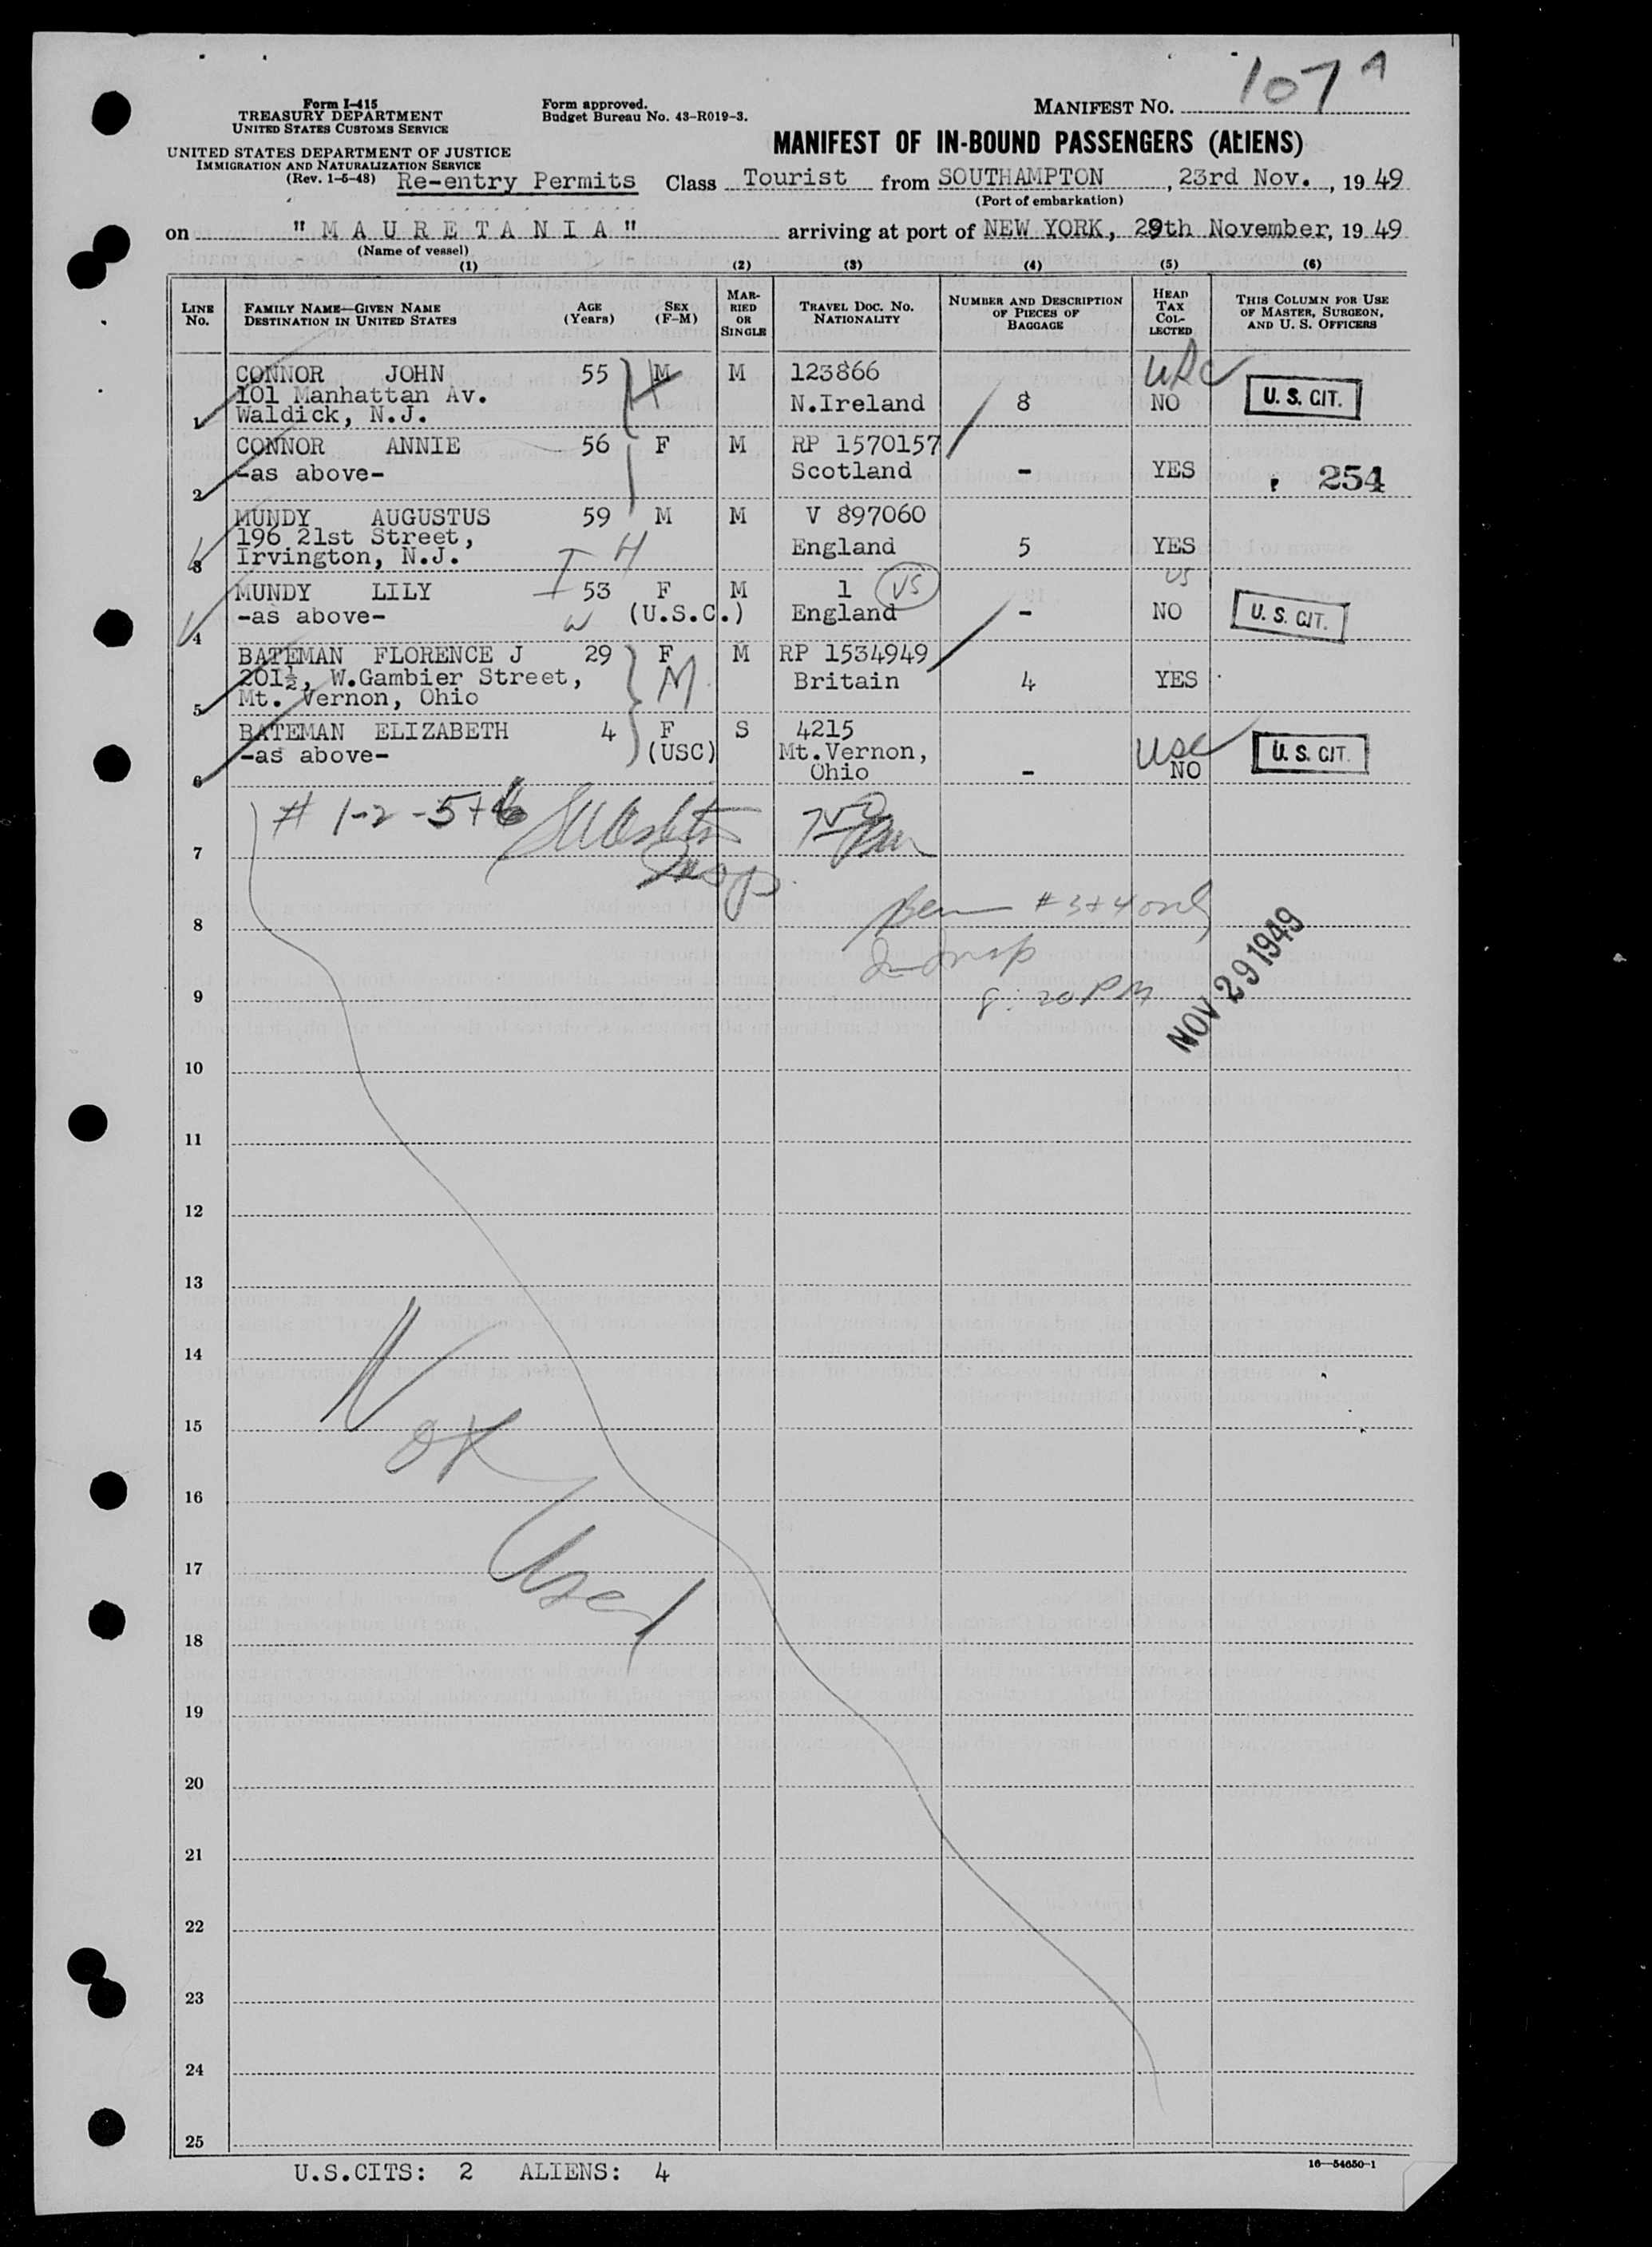 107
Form I-415
TREASURY DEPARTMENT
UNITED STATES CUSTOMS SERVICE
Form approved.
Budget Bureau No. 43-R019-3.
MANIFEST NO.
MANIFEST OF IN-BOUND PASSENGERS (ALIENS)
UNITED STATES DEPARTMENT OF JUSTICE
IMMIGRATION AND NATURALIZATION SERVICE
(Rev. 1-5-48) Re-entry Permits Class Tourist from SOUTHAMPTON, 23rd Nov., 1949
(Port of embarkation)
on "MAURETANIA" arriving at port of NEW YORK, 29th November, 1949
(Name of vessel)
(1) (2) (3) (4) (5) (6)
LINE No. FAMILY NAME—GIVEN NAME DESTINATION IN UNITED STATES AGE (Years) SEX (F-M) MARRIED OR SINGLE TRAVEL DOC. NO. NATIONALITY NUMBER AND DESCRIPTION OF PIECES OF BAGGAGE HEAD TAX COLLECTED THIS COLUMN FOR USE OF MASTER, SURGEON, AND U. S. OFFICERS
CONNOR JOHN 55 M M 123866
101 Manhattan Av. N.Ireland 8 NO U. S. CIT.
1 Waldick, N.J.
CONNOR ANNIE 56 F M RP 1570157
-as above- Scotland - YES 254
2
MUNDY AUGUSTUS 59 M M V 897060
196 21st Street, England 5 YES
3 Irvington, N.J. H
MUNDY LILY 53 F M 1 VS US
-as above- (U.S.C.) England - NO U. S. CIT.
4
BATEMAN FLORENCE J 29 F M RP 1534949
201½, W.Gambier Street, M Britain 4 YES
5 Mt. Vernon, Ohio
BATEMAN ELIZABETH 4 F S 4215 USC
-as above- (USC) Mt.Vernon, U. S. CIT.
6 Ohio - NO
# 1-2-5+6
7 Insp.
# 3+4 only
8
Insp
9 8:20 PM NOV 29 1949
10
11
12
13
14
15
16
17
Not Used
18
19
20
21
22
23
24
25
U.S.CITS: 2 ALIENS: 4
16—54650-1